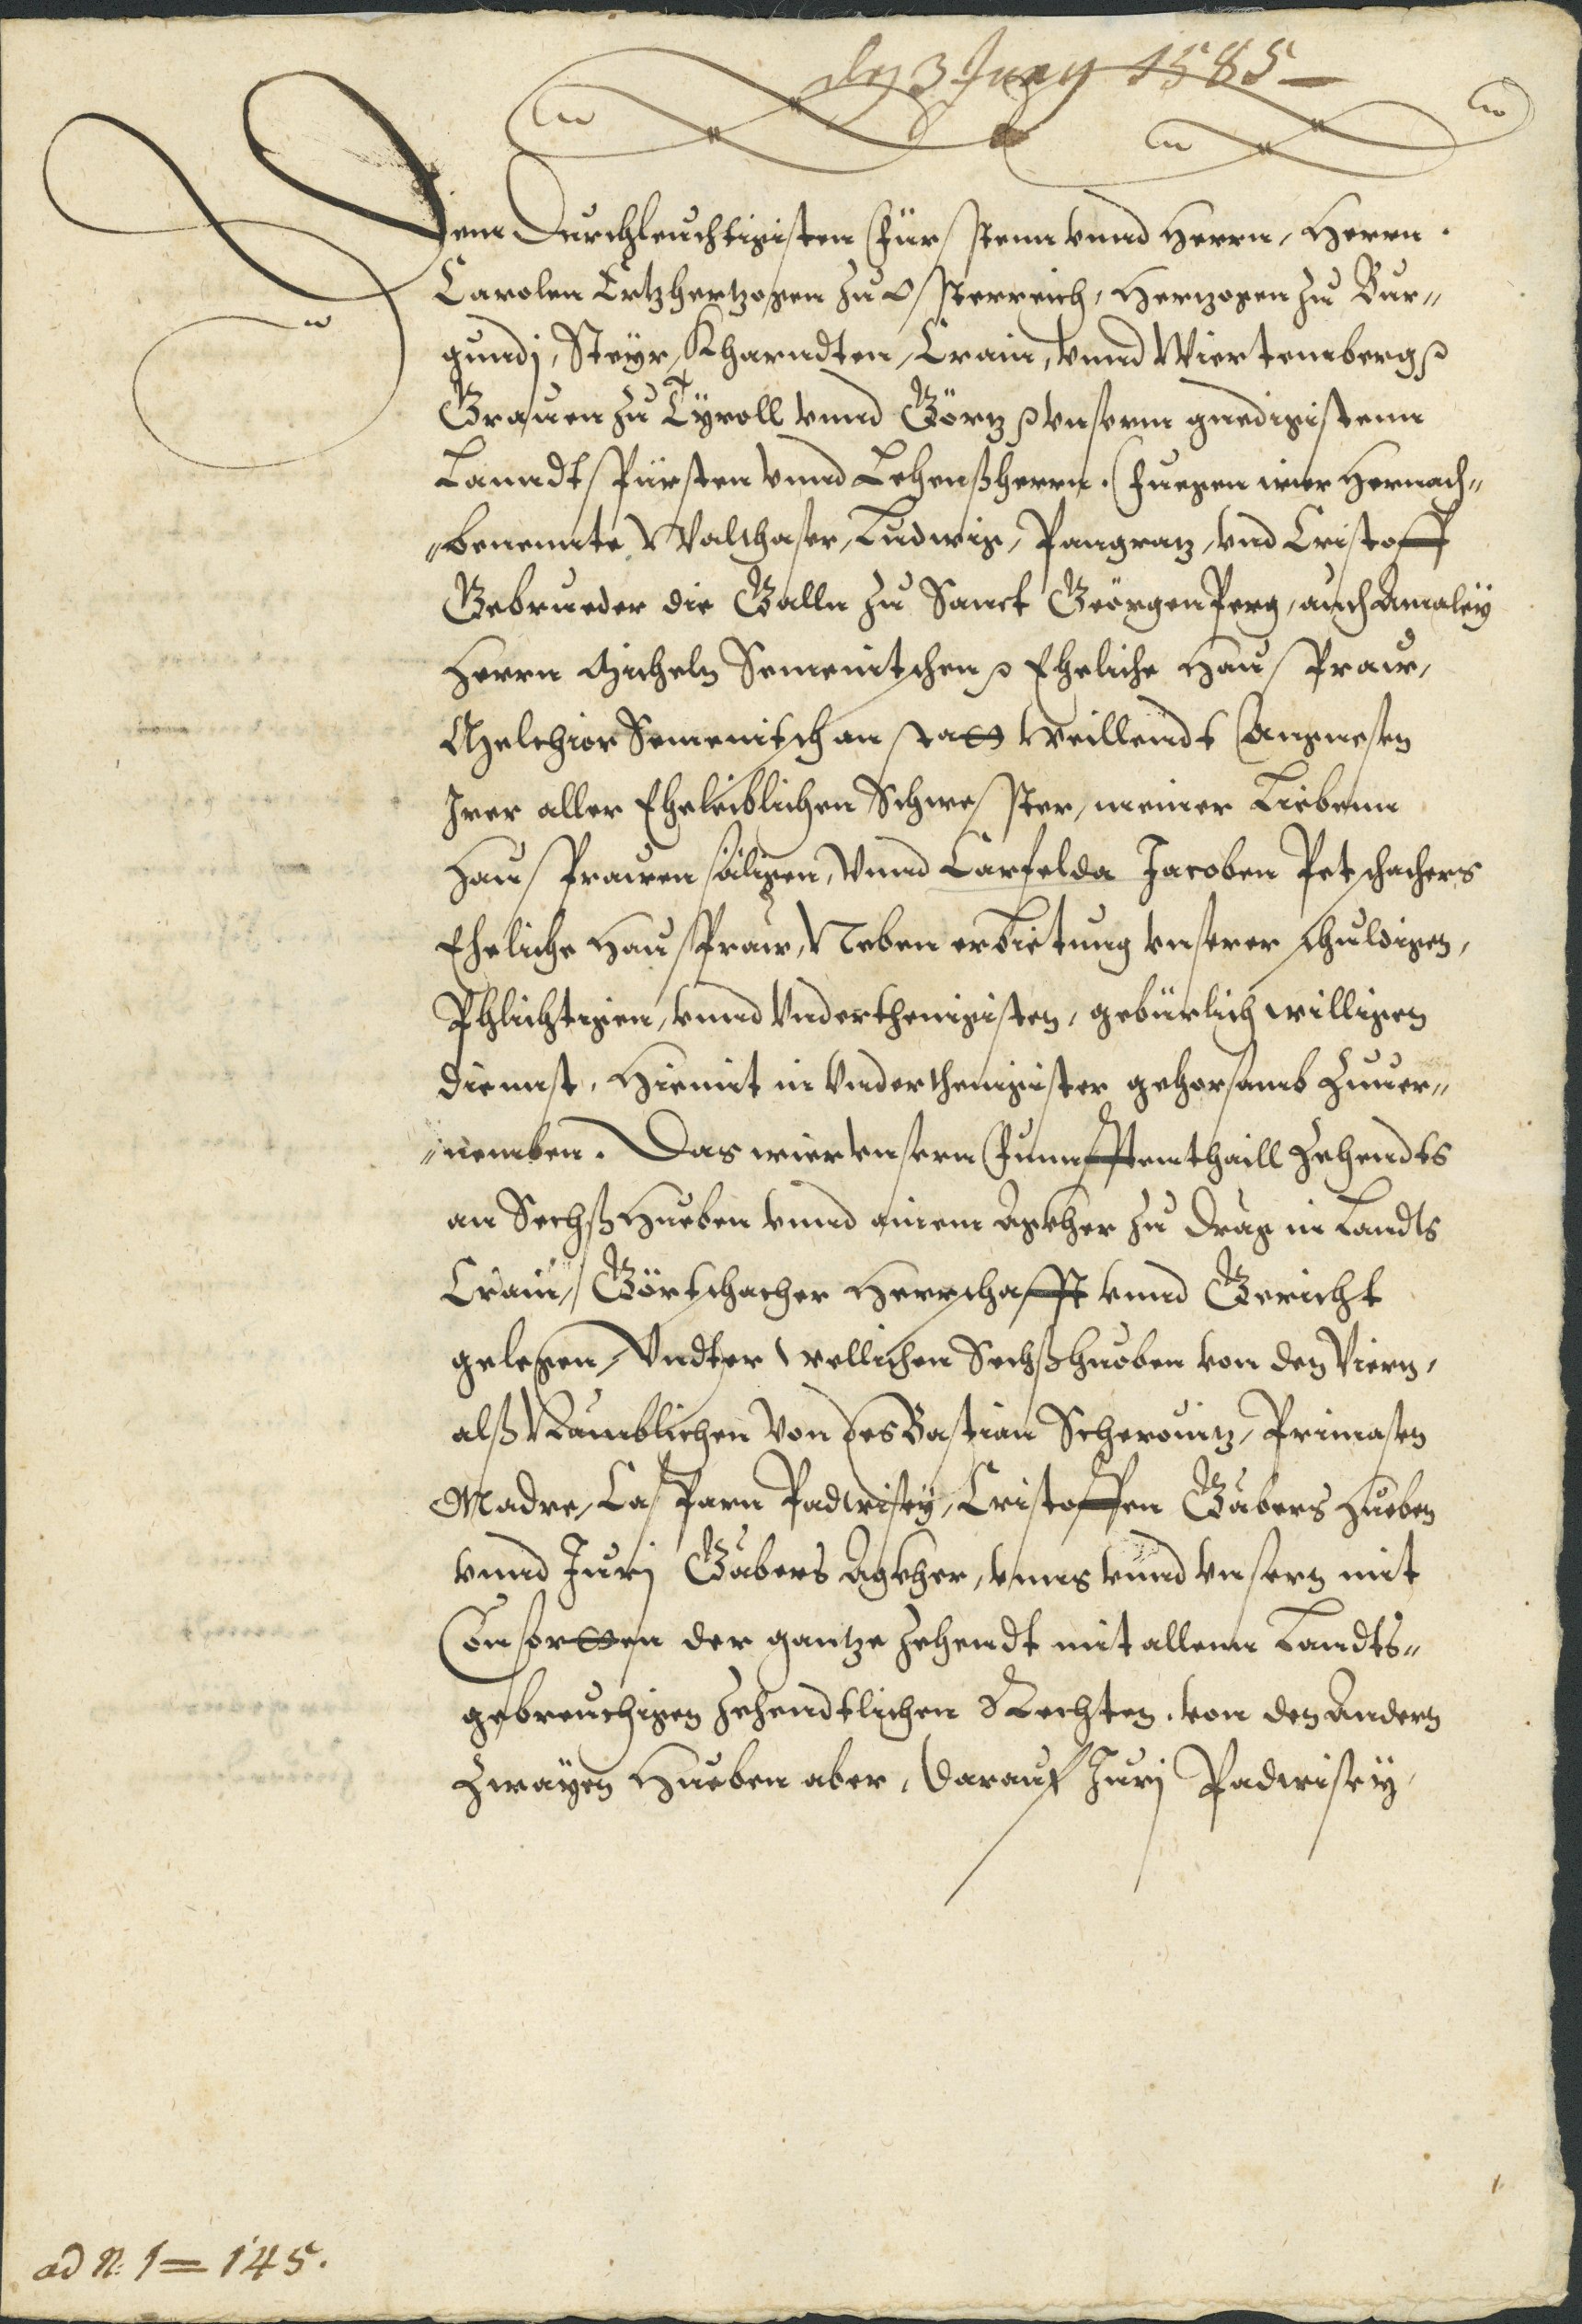 dn 3 Juny 1585
Dem Durchleuchtigisten Fürsstenn vnnd Herrn, Herrn.
Carolen Ertzhertzogen zu Össterreich, Hertzogen zu Bur„
gundj, Steyr, Kharndten, Crain, vnnd Wiertemberg p
Grauen zu Tyroll vnnd Görtz p vnserm gnedigistenn
Lanndtsfürsten vnnd Lehenßherrn. Fuegen wier Hernach„
„benennte Walthaser, Ludwig, Pangratz, vnd Cristoff
Gebrueder die Galln zu Sanct Geörgenperg, auch Amaley
Herrn Micheln Semenitschen p Eheliche Haussfraw,
Melchior Semenitsch an statt Weillendt Angnesen
Irer aller Eheleiblichen Schwesster, meiner Liebenn
Haussfrawen säligen, Vnnd Carfelda Jacoben Petschachers
Eheliche Haussfraw, Neben erbietung vnserer schuldigen,
Phlichtigen, vnnd Vnderthenigisten, gebürlich willigen
Dienst, Hiemit in Vnderthenigister gehorsamb Zuuer„
„nemben. Das wier vnsern Funnfftenthaill Zehendts
an Sechß Hueben vnnd ainem Agkher zu Drag in Landts
Crain, Görtschacher Herrschafft vnnd Gericht
gelegen, Vndter wellichen Sechß Hueben von den Viern,
alß Namblichen Von des Bastian Scherouitz, Primasen
Madre, Casparn Padwisey, Cristoffen Gabers Hueben
vnnd Jurj Gabers Agkher, vnns vnnd vnsern mit
Consortten der gantze Zehendt mit allenn Landts„
gebreuchigen Zehendtlichen Rechten, von den Andern
Zwayen Hueben aber, Darauf Jurj Padwisey,
ad N: 1 = 145.